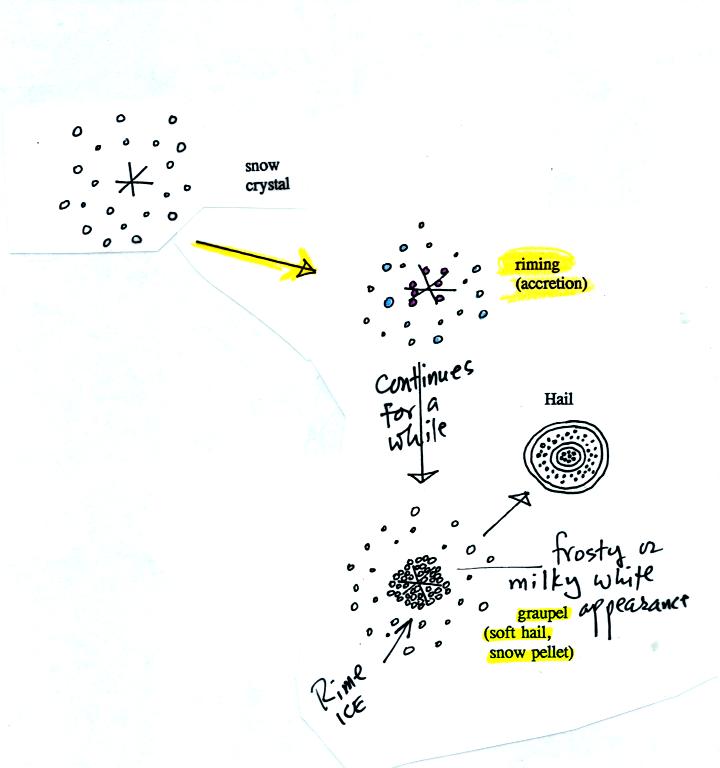 snow
crystal
riming
(accretion)
Continues
for a
while
Hail
frosty or
milky white
appearance
graupel
(soft hail,
snow pellet)
Rime
ICE